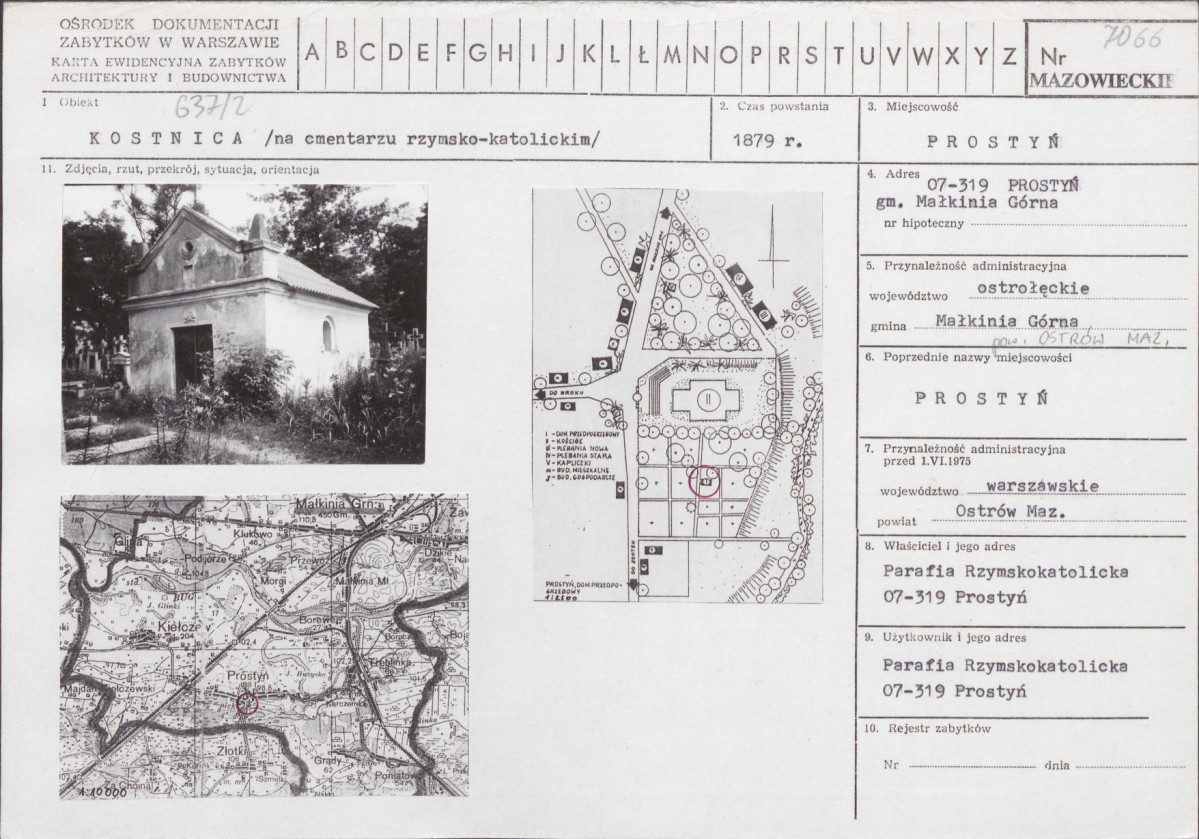 OŚRODEK DOKUMENTACJI
ZABYTKÓW W WARSZAWIE
KARTA EWIDENCYJNA ZABYTKÓW
ARCHITEKTURY I BUDOWNICTWA
A B C D E F G H I J K L Ł M N O P R S T U V W X Y Z
Nr 7066
MAZOWIECKIE
1 Obiekt 637/2
K O S T N I C A /na cmentarzu rzymsko-katolickim/
2. Czas powstania
1879 r.
3. Miejscowość
P R O S T Y Ń
11. Zdjęcia, rzut, przekrój, sytuacja, orientacja
4. Adres
07-319 PROSTYŃ
gm. Małkinia Górna
nr hipoteczny
5. Przynależność administracyjna
województwo ostrołęckie
gmina Małkinia Górna
pow. OSTRÓW MAZ.
6. Poprzednie nazwy miejscowości
P R O S T Y Ń
7. Przynależność administracyjna
przed 1.VI.1975
województwo warszawskie
powiat Ostrów Maz.
8. Właściciel i jego adres
Parafia Rzymskokatolicka
07-319 Prostyń
9. Użytkownik i jego adres
Parafia Rzymskokatolicka
07-319 Prostyń
10. Rejestr zabytków
Nr dnia
DO BROKU
I - DOM PRZEDPOGRZEBOWY
II - KOŚCIÓŁ
III - PLEBANIA NOWA
IV - PLEBANIA STARA
V - KAPLICZKI
m - BUD. MIESZKALNE
g - BUD. GOSPODARCZE
DO ZŁOTEK
PROSTYŃ, DOM PRZEDPO-
GRZEBOWY
1:2500
Małkinia Grn.
110,8 450Gm.
Glina
Klukowo
46
Dzikie
Podgórze
104,8
Przewóz
54
Morgi
Małkinia Mł.
BUG
J. Glinki
Kiełcz
204
Borowe
102,4
Treblinka
Prostyń
98,8
J. Buzysko
Majdan Kiełczewski
Karczemka
Złotki
106
Grądy
62
Poniatowo
1:10 000